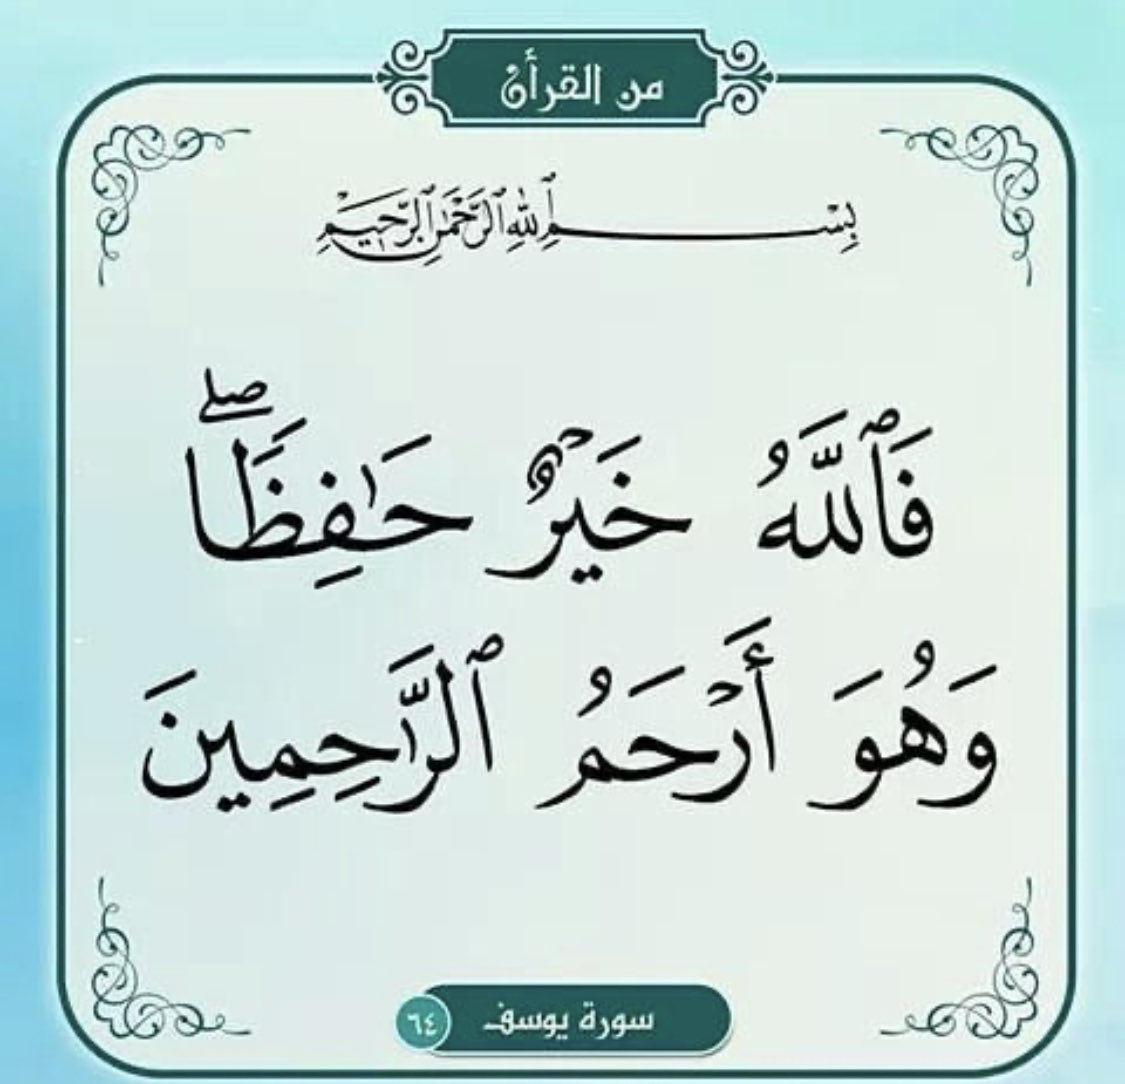 من القرأن
بِسْمِ اللهِ الرَّحْمٰنِ الرَّحِيمِ
فَٱللَّهُ خَيْرٌ حَـٰفِظًاۖ
وَهُوَ أَرْحَمُ ٱلرَّٰحِمِينَ
سورة يوسف ٦٤